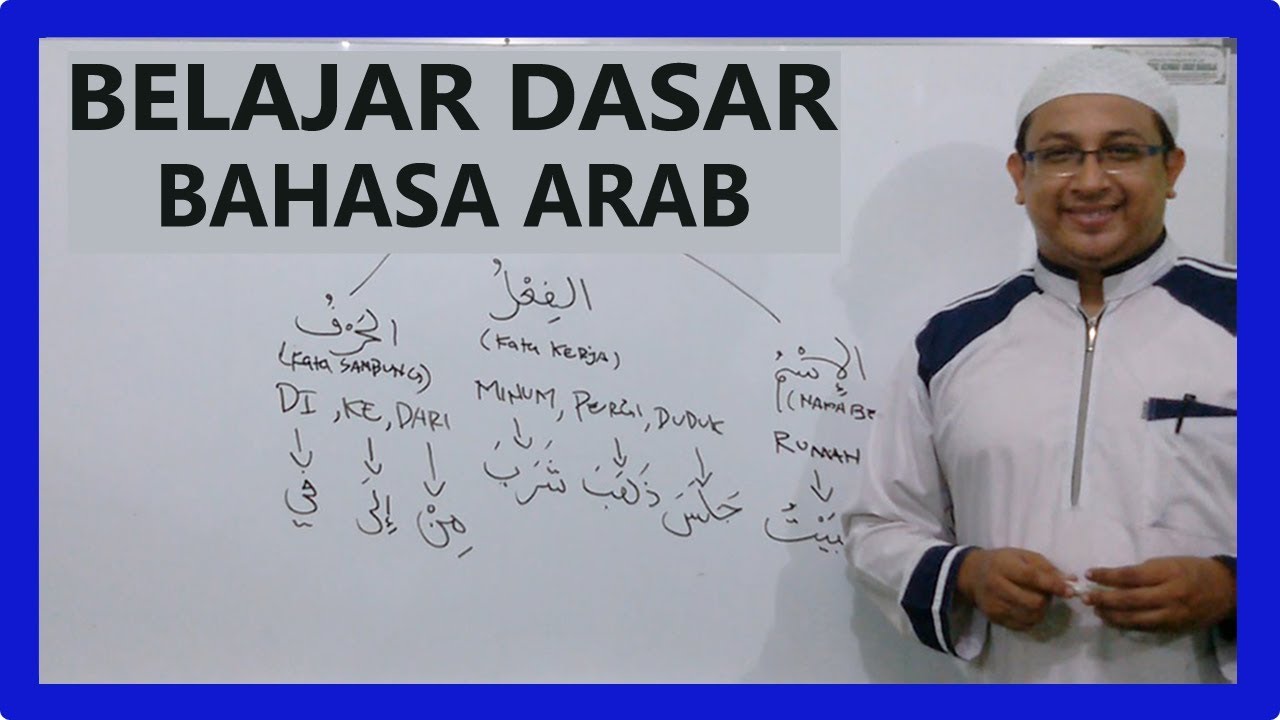 BELAJAR DASAR
BAHASA ARAB
الحَرْفُ
(Kata SAMBUNG)
DI, KE, DARI
مِنْ إِلَى فِي
الفِعْلُ
(Kata KERJA)
MINUM, PERGI, DUDUK
جَلَسَ ذَهَبَ شَرَبَ
الإِسْمُ
(NAMA BE
RUMAH
بَيْتٌ